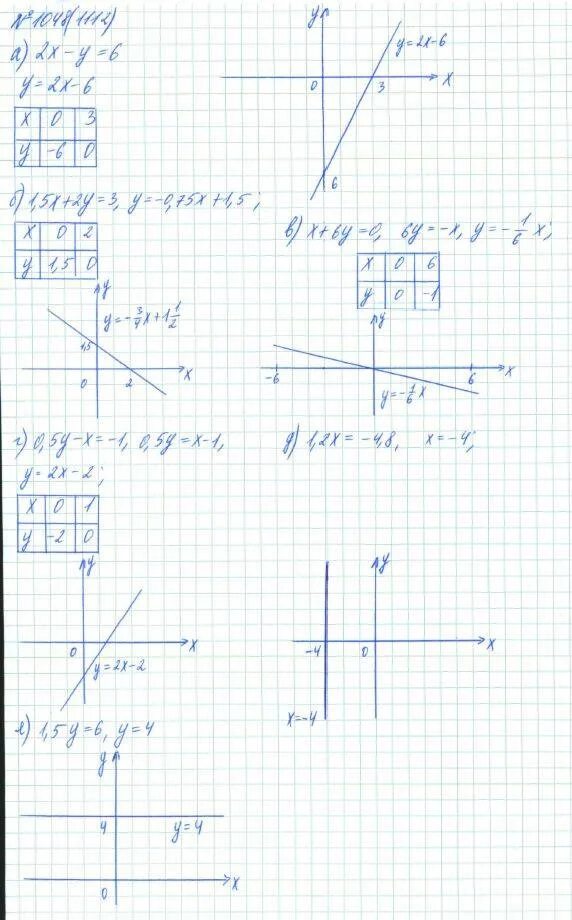 №1048(1112)
а) 2x-y=6
y=2x-6
x 0 3
y -6 0
y
y=2x-6
0 3 x
6
б) 1,5x+2y=3, y=-0,75x+1,5;
x 0 2
y 1,5 0
y
y=-3/4x+1 1/2
1,5
0 2 x
в) x+6y=0, 6y=-x, y=-1/6 x;
x 0 6
y 0 -1
y
-6 6 x
y=-1/6 x
г) 0,5y-x=-1, 0,5y=x-1,
y=2x-2;
x 0 1
y -2 0
y
0 x
y=2x-2
д) 1,2x=-4,8, x=-4;
y
-4 0 x
x=-4
е) 1,5y=6, y=4
y
4 y=4
0 x